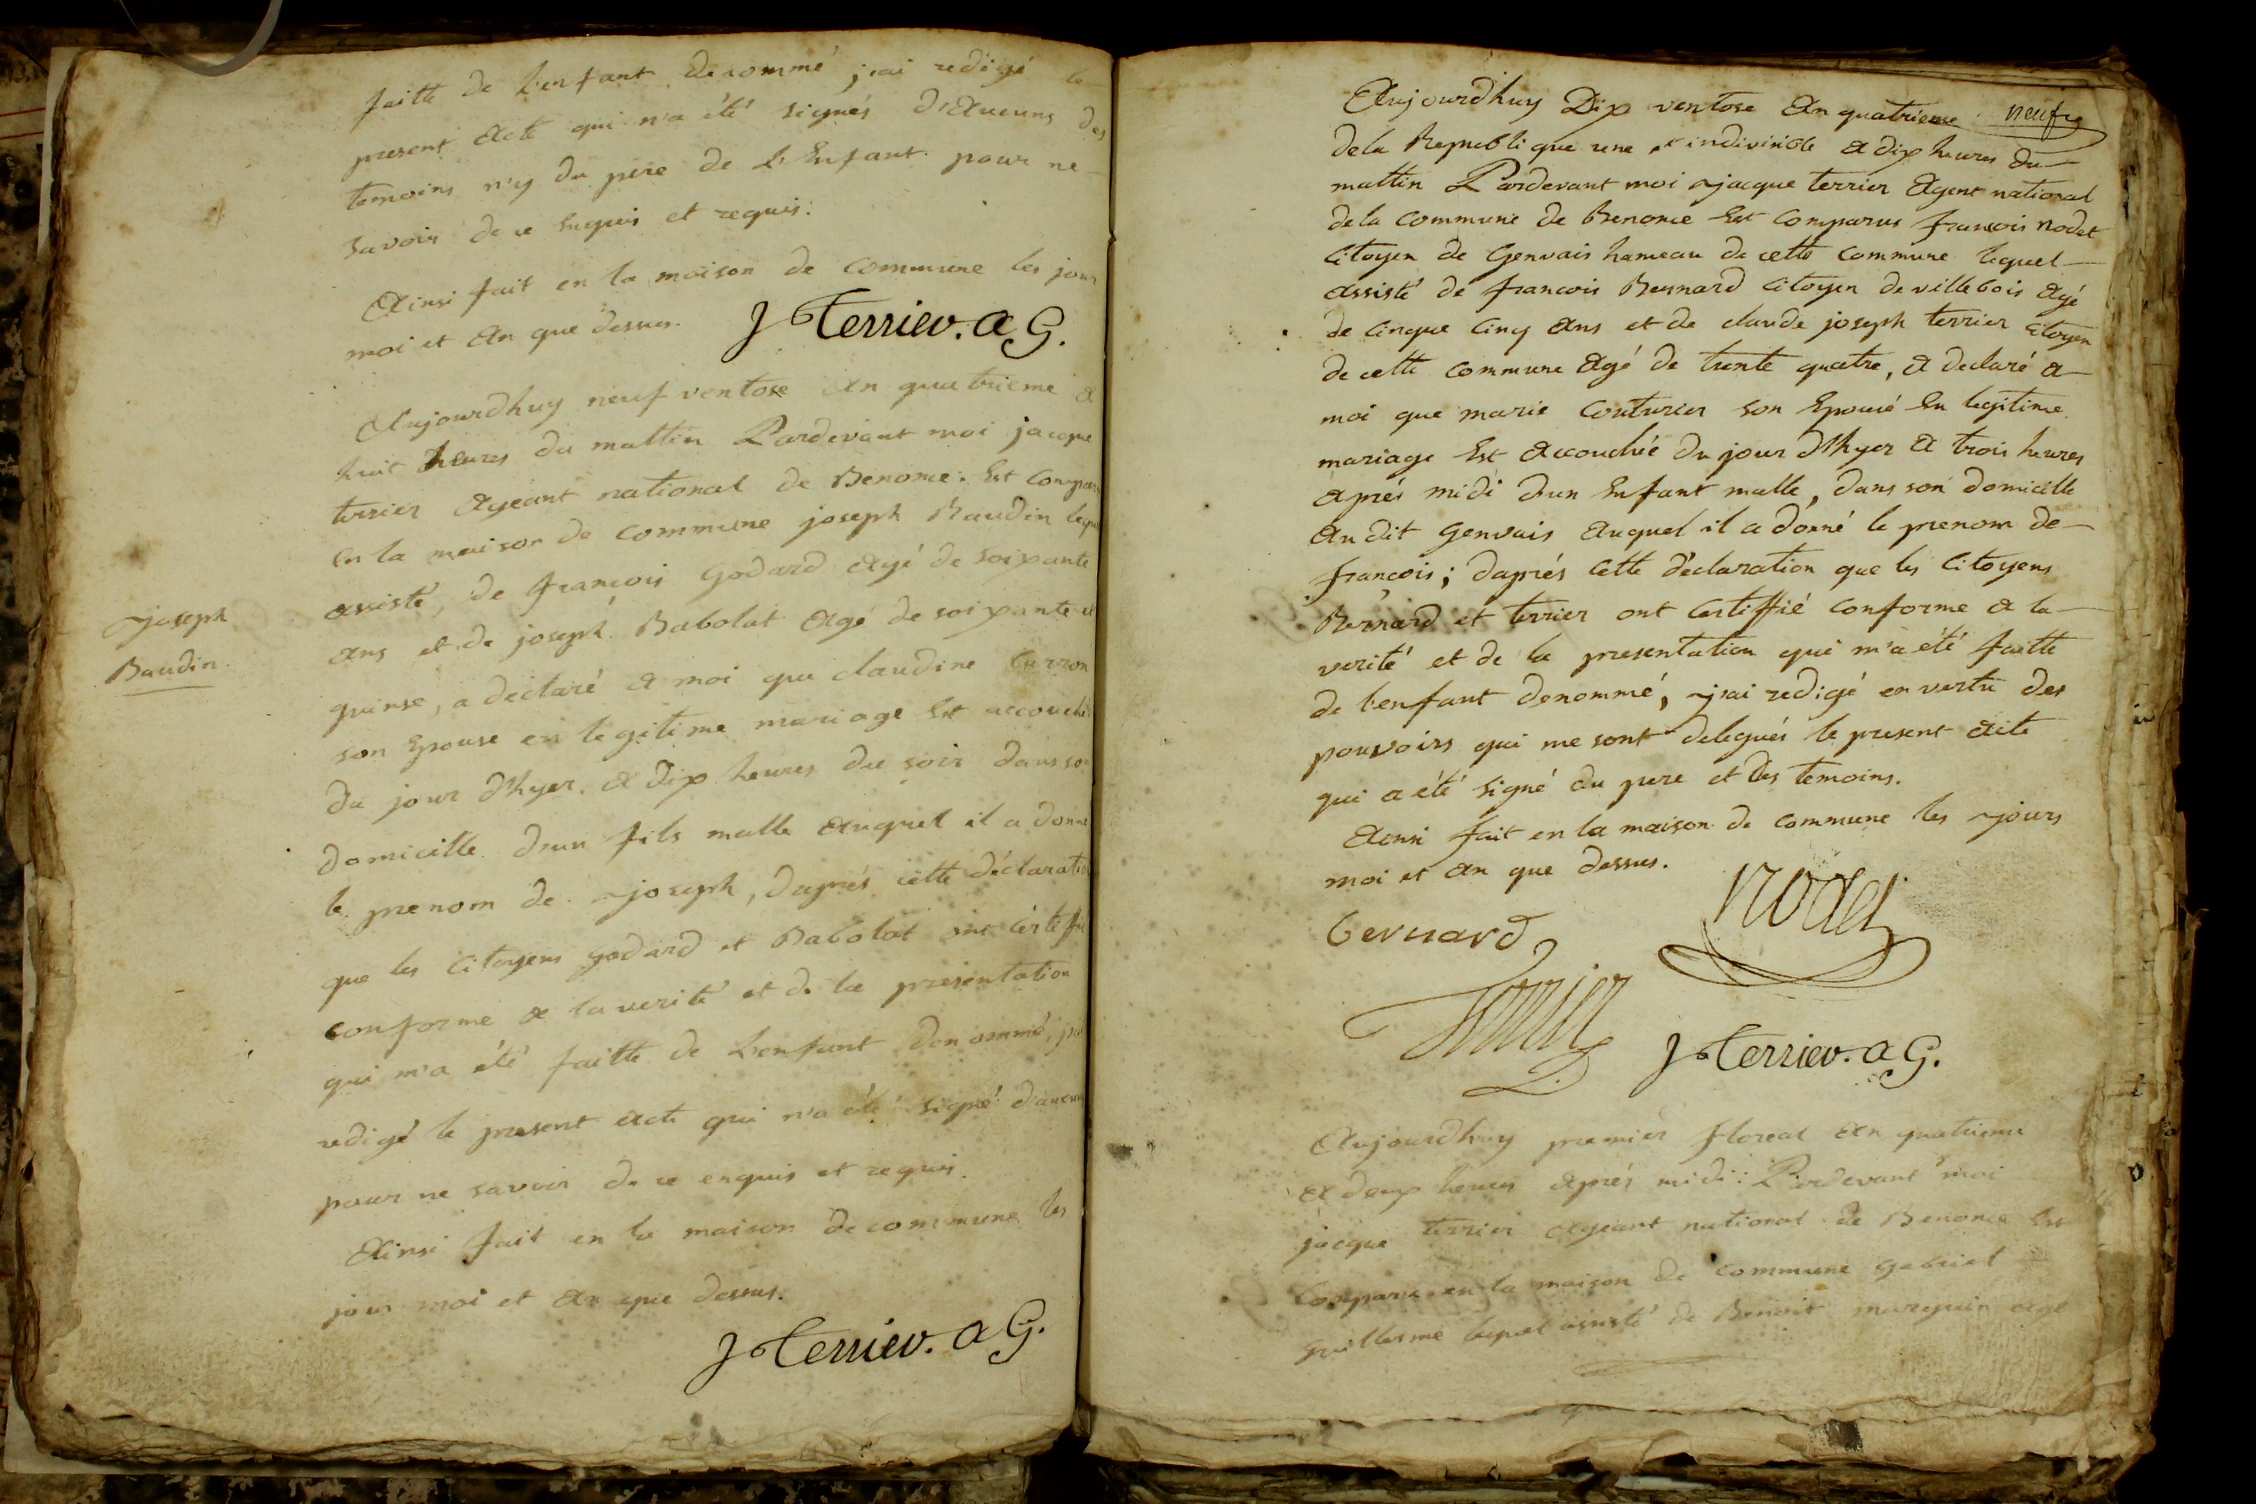 faitte de L'enfant denommé, j'ai redigé le
present acte qui n'a été signés d'aucuns des
temoins n'y du pere de L'Enfant pour ne
savoir de ce Enquis et requis.
Ainsi fait en la maison de commune les jour
moi et an que dessus. J Terrier. a G.
Aujourdhuy neuf ventose an quatrieme a
huit heures du mattin Pardevant moi jacque
terrier ageant national de Benonce: Est compar
En la maison de commune joseph Baudin leque
assisté, de françois Godard agé de soixante
ans et de joseph Babolat agé de soixante et
joseph
Baudin.
quinse, a déclaré a moi que claudine Curron
son Epouse en legitime mariage Est accouché
du jour d'hyer. a dix heures du soir dans so
domicille d'un fils malle auquel il a donné
le prenom de joseph, daprés cette déclaratio
que les Citoyens godard et Babolat ont Certiffié
conforme a la verité et de la présentation
qui m'a été faitte de L'enfant denommé, j'ai
redigé le present acte qui n'a été signé d'aucun
pour ne savoir de ce enquis et requis.
Ainsi fait en la maison de commune les
jour moi et an que dessus.
J Terrier. a G.
Aujourdhuy Dix ventose an quatrieme neuf
de la Republique une et indivisible a dix heures du
mattin Pardevant moi jacque terrier agent national
de la commune de Benonce Est comparus francois nodet
Citoyen de Genvais hameau de cette commune lequel
assisté de francois Bernard Citoyen de villebois agé
de cinque cinq ans et de claude joseph terrier citoyen
de cette commune agé de trente quatre, a declaré a
moi que marie Couturier son Epouse En legitime
mariage Est accouchée du jour d'hyer a trois heures
aprés midi d'un Enfant malle, dans son domicille
au dit Genvais auquel il a donné le prenom de
francois; daprés cette déclaration que les Citoyens
Bernard et terrier ont certiffié conforme a la
verité et de la presentation qui m'a été faitte
de l'enfant denommé, j'ai redigé en vertu des
pouvoirs qui me sont delegués le present acte
qui a été signé du pere et des temoins.
Ainsi fait en la maison de commune les jours
moi et an que dessus.
bernard nodet
Terrier
J Terrier. a G.
Aujourdhuy premier floreal an quatrieme
a deux heures aprés midi: Pardevant moi
jacque terrier ageant national de Benonce Est
Comparu en la maison de commune gabriel
guillerme lequel assisté de Benoit marquin agé